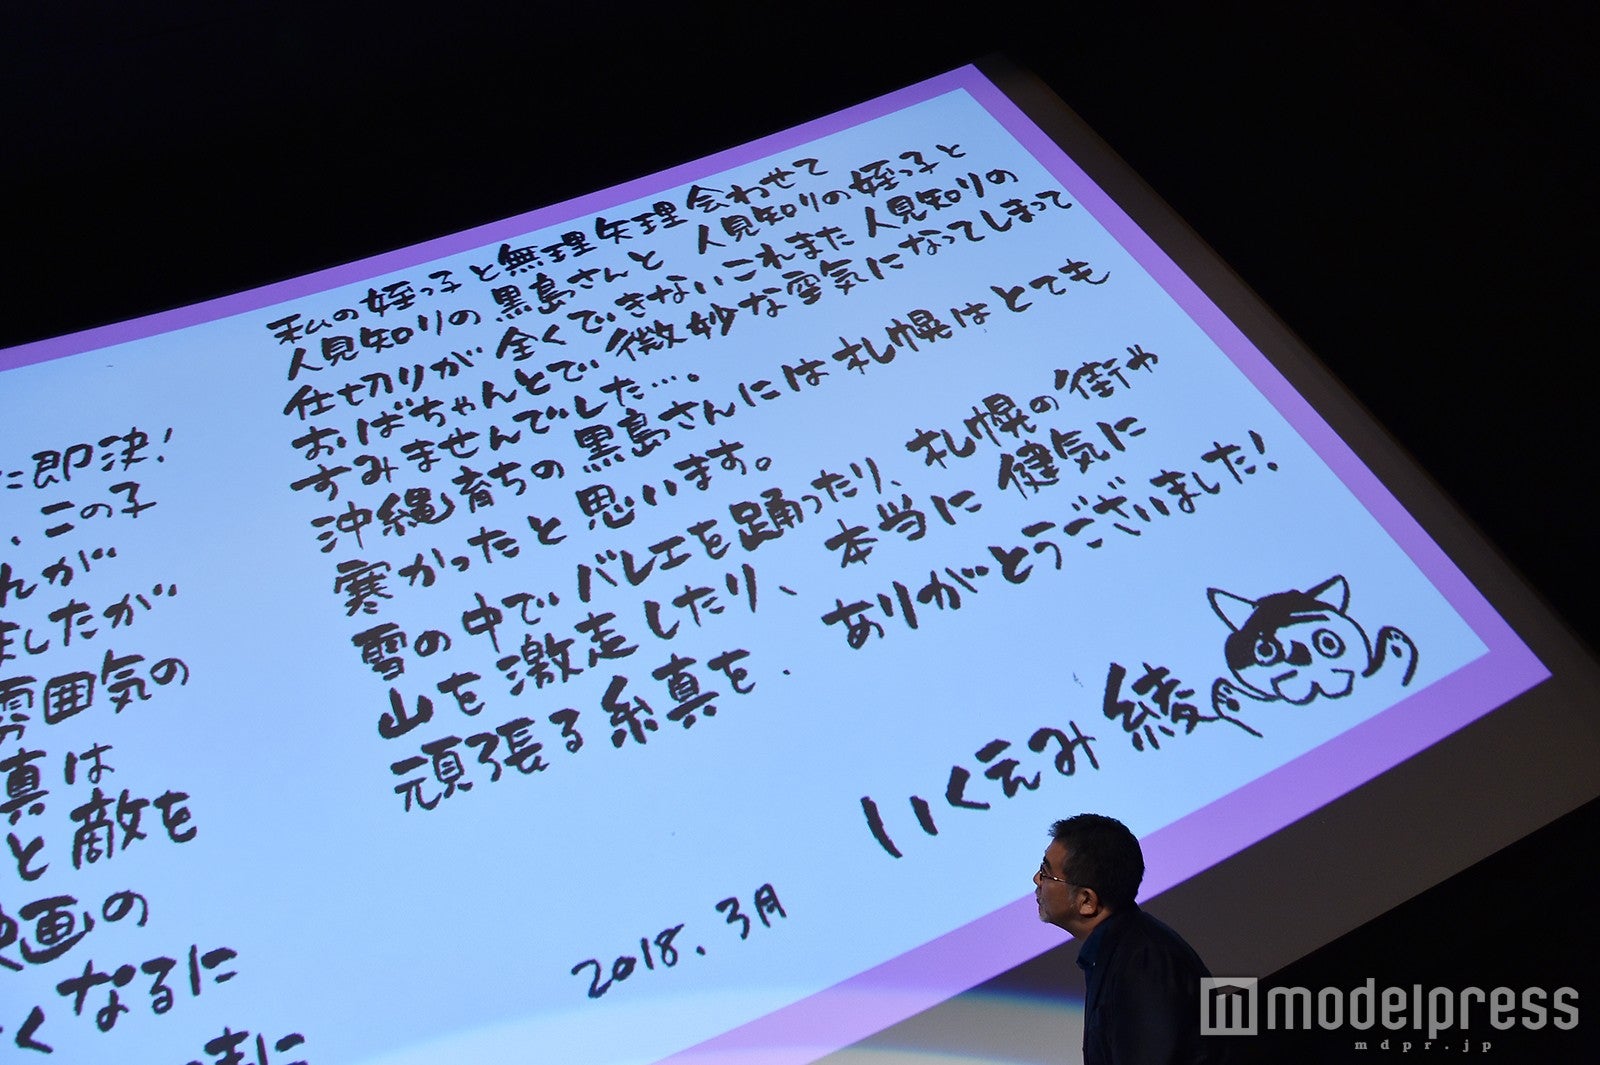 私の姪っ子と無理矢理会わせて
人見知りの黒島さんと人見知りの姪っ子と
仕切りが全くできないこれまた人見知りの
おばちゃんとで微妙な空気になってしまって
すみませんでした…。
沖縄育ちの黒島さんには札幌はとても
寒かったと思います。
雪の中でバレエを踊ったり、札幌の街や
山を激走したり、本当に健気に
頑張る糸真を、ありがとうございました!
いくえみ綾
2018.3月
に即決!
、この子
んが
ましたが
雰囲気の
真は
と敵を
映画の
くなるに
modelpress
mdpr.jp